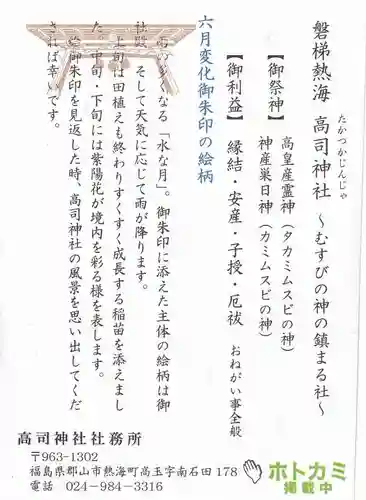 磐梯熱海 高司神社 ～むすびの神の鎮まる社～
たかつかじんじゃ
【御祭神】
高皇産霊神（タカミムスビの神）
神産巣日神（カミムスビの神）
【御利益】 縁結・安産・子授・厄祓 おねがい事全般
六月変化御朱印の絵柄
雨の多くなる「水な月」。御朱印に添えた主体の絵柄は御
社殿。そして天気に応じて雨が降ります。
上旬は田植えも終わりすくすく成長する稲苗を添えまし
た。中旬・下旬には紫陽花が境内を彩る様を表します。
御朱印を見返した時、高司神社の風景を思い出してくだ
されば幸いです。
高司神社社務所
〒963-1302
福島県郡山市熱海町高玉字南石田178
電話 024-984-3316
ホトカミ
掲載中